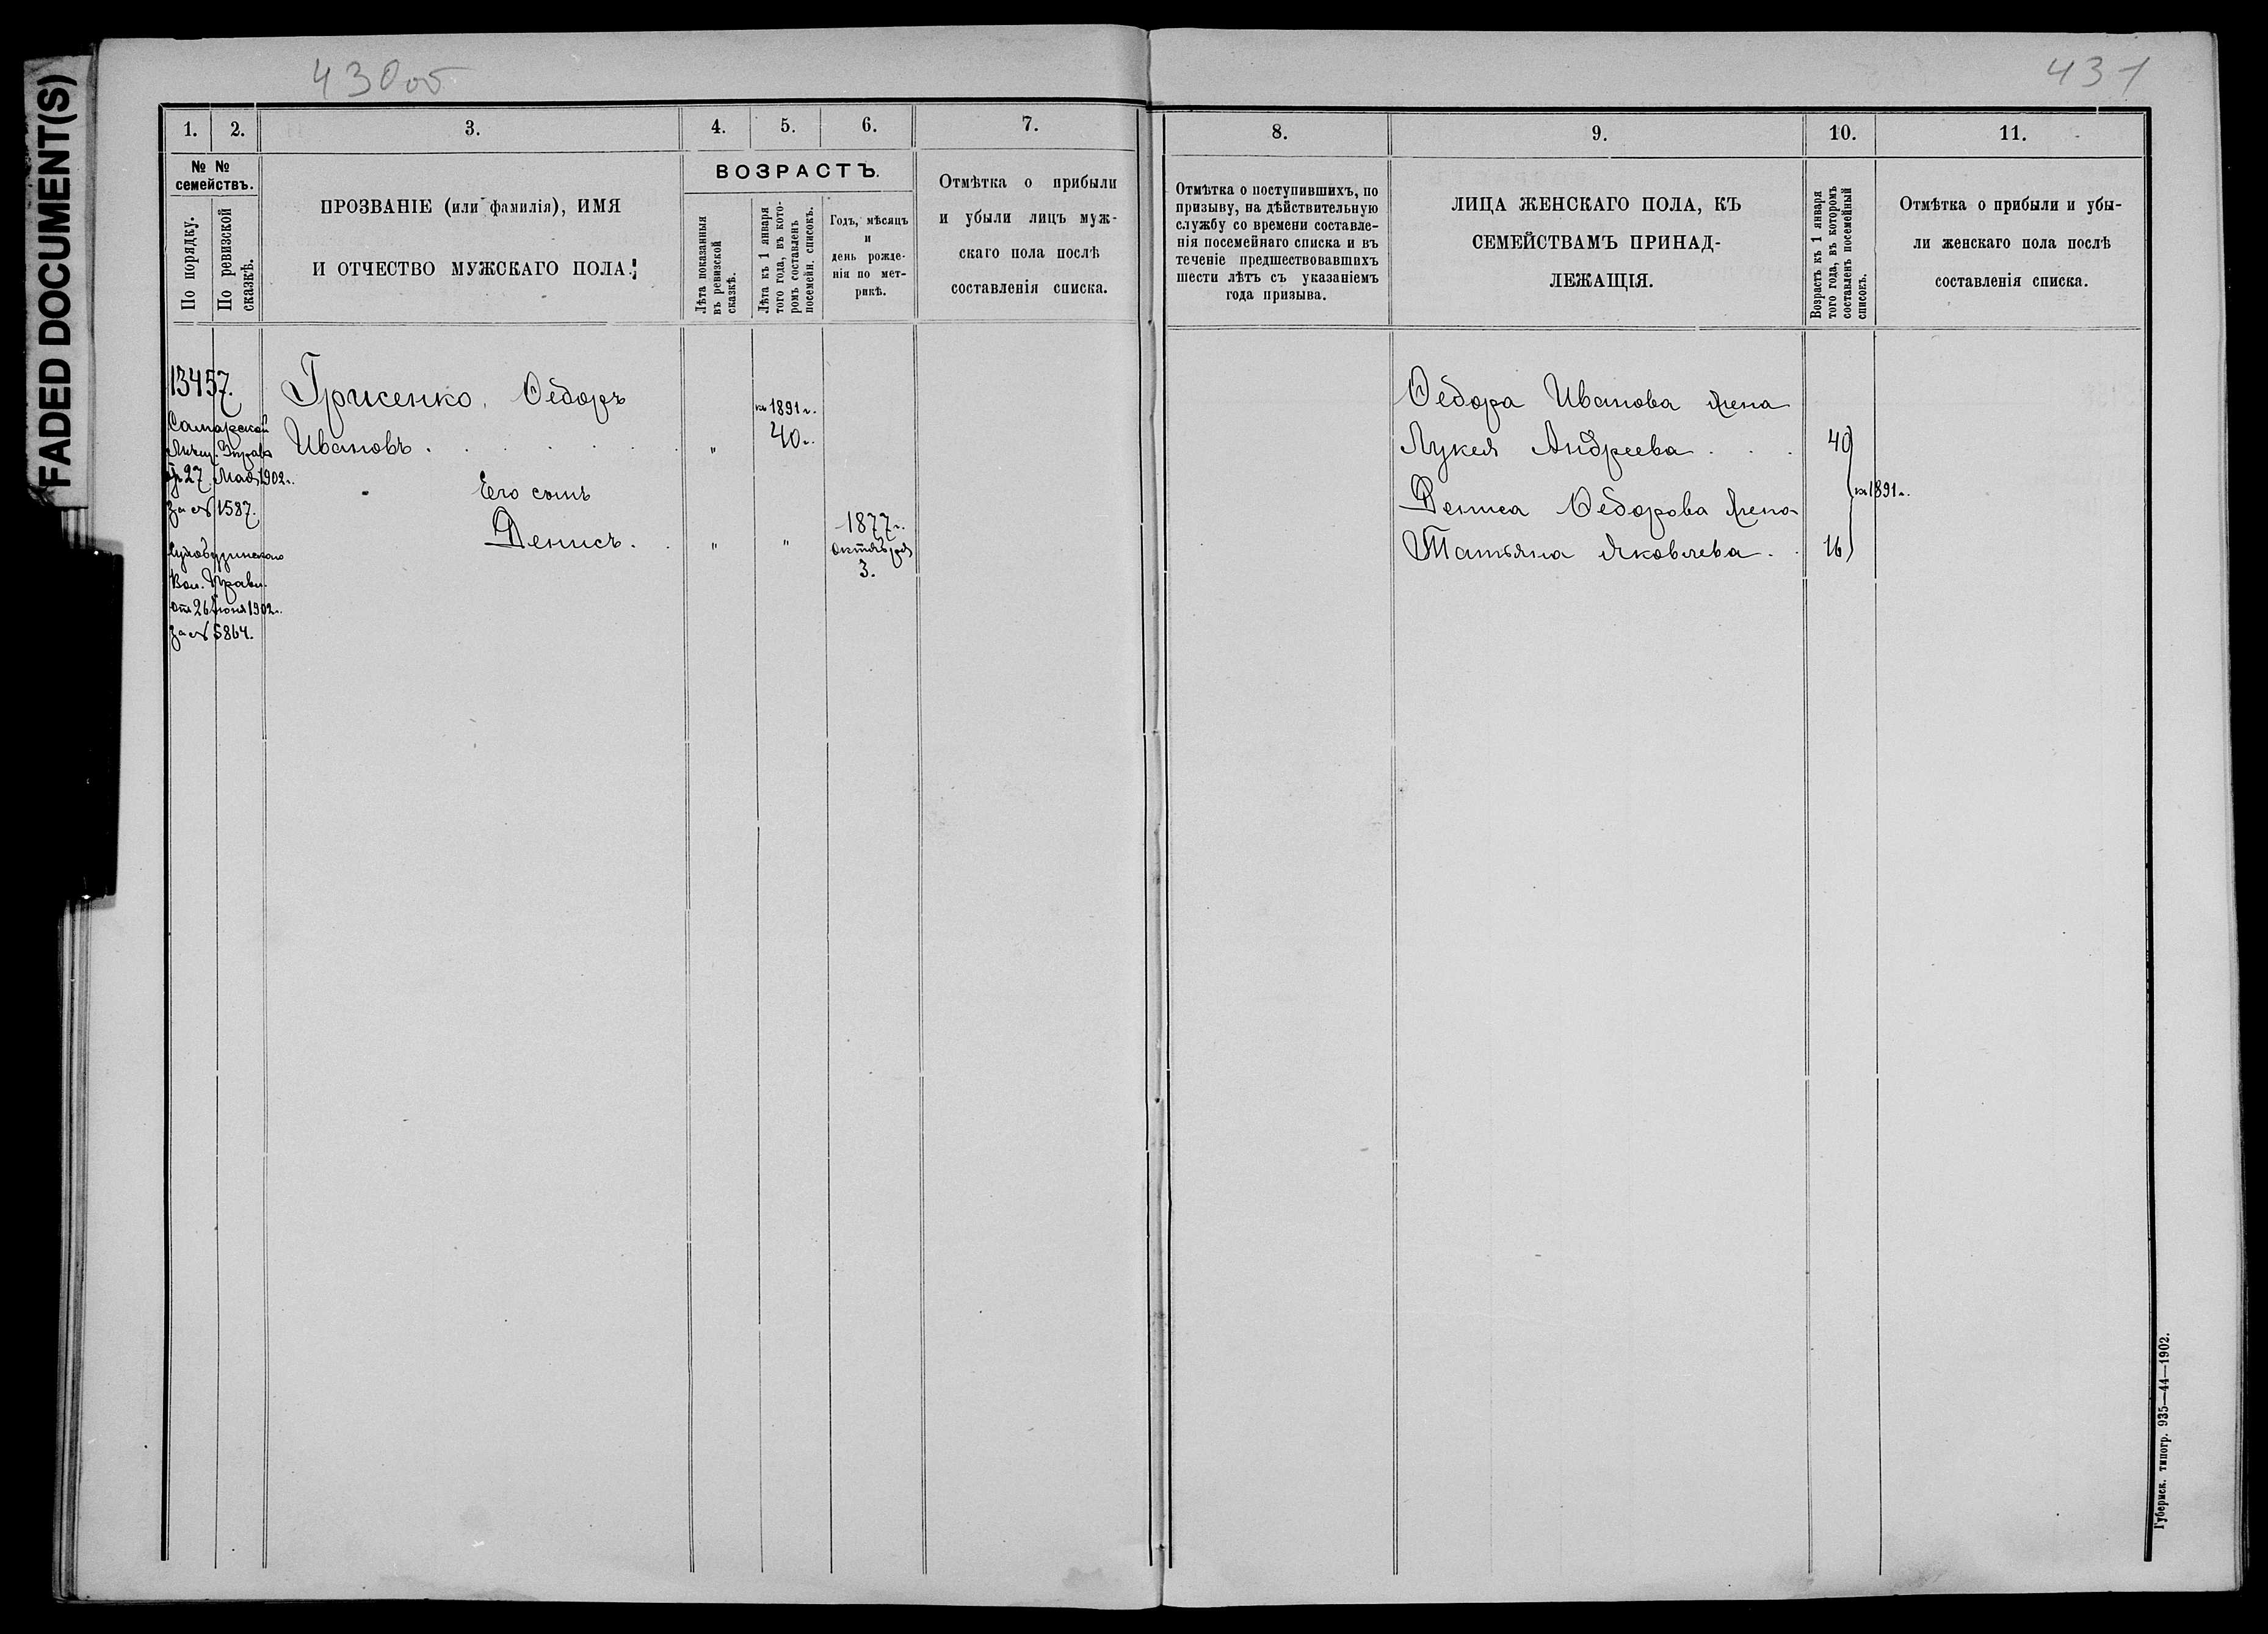 FADED DOCUMENT(S)
430об
431
1.
2.
3.
4.
5.
6.
7.
8.
9.
10.
11.
№ №
семействъ.
По порядку.
По ревизской
сказкѣ.
ПРОЗВАНІЕ (или фамилія), ИМЯ
И ОТЧЕСТВО МУЖСКАГО ПОЛА.
ВОЗРАСТЪ.
Лѣта показанныя
въ ревизской
сказкѣ.
Лѣта къ 1 января
того года, въ кото-
ромъ составленъ
посемейн. списокъ.
Годъ, мѣсяцъ
и
день рожде-
нія по мет-
рикѣ.
Отмѣтка о прибыли
и убыли лицъ муж-
скаго пола послѣ
составленія списка.
Отмѣтка о поступившихъ, по
призыву, на дѣйствительную
службу со времени составле-
нія посемейнаго списка и въ
теченіе предшествовавшихъ
шести лѣтъ съ указаніемъ
года призыва.
ЛИЦА ЖЕНСКАГО ПОЛА, КЪ
СЕМЕЙСТВАМЪ ПРИНАД-
ЛЕЖАЩІЯ.
Возрастъ къ 1 января
того года, въ которомъ
составленъ посемейный
списокъ.
Отмѣтка о прибыли и убы-
ли женскаго пола послѣ
составленія списка.
13457.
Самарской
Мѣщ. Управ
от 27 Мая 1902 г.
за № 1587.
Вол. Правл.
отъ 26 Іюня 1902 г.
за № 5864.
Грисенко, Ѳедоръ
Ивановъ . . . . . .
Его сынъ
Денисъ . .
"
къ 1891 г.
40 г.
"
"
1877 г.
октября
3.
Ѳедора Иванова жена
Лукея Андреева . . .
40
Дениса Ѳедорова жена
къ 1891 г.
Татьяна Яковлева . .
16
Губернск. типогр. 935—44—1902.